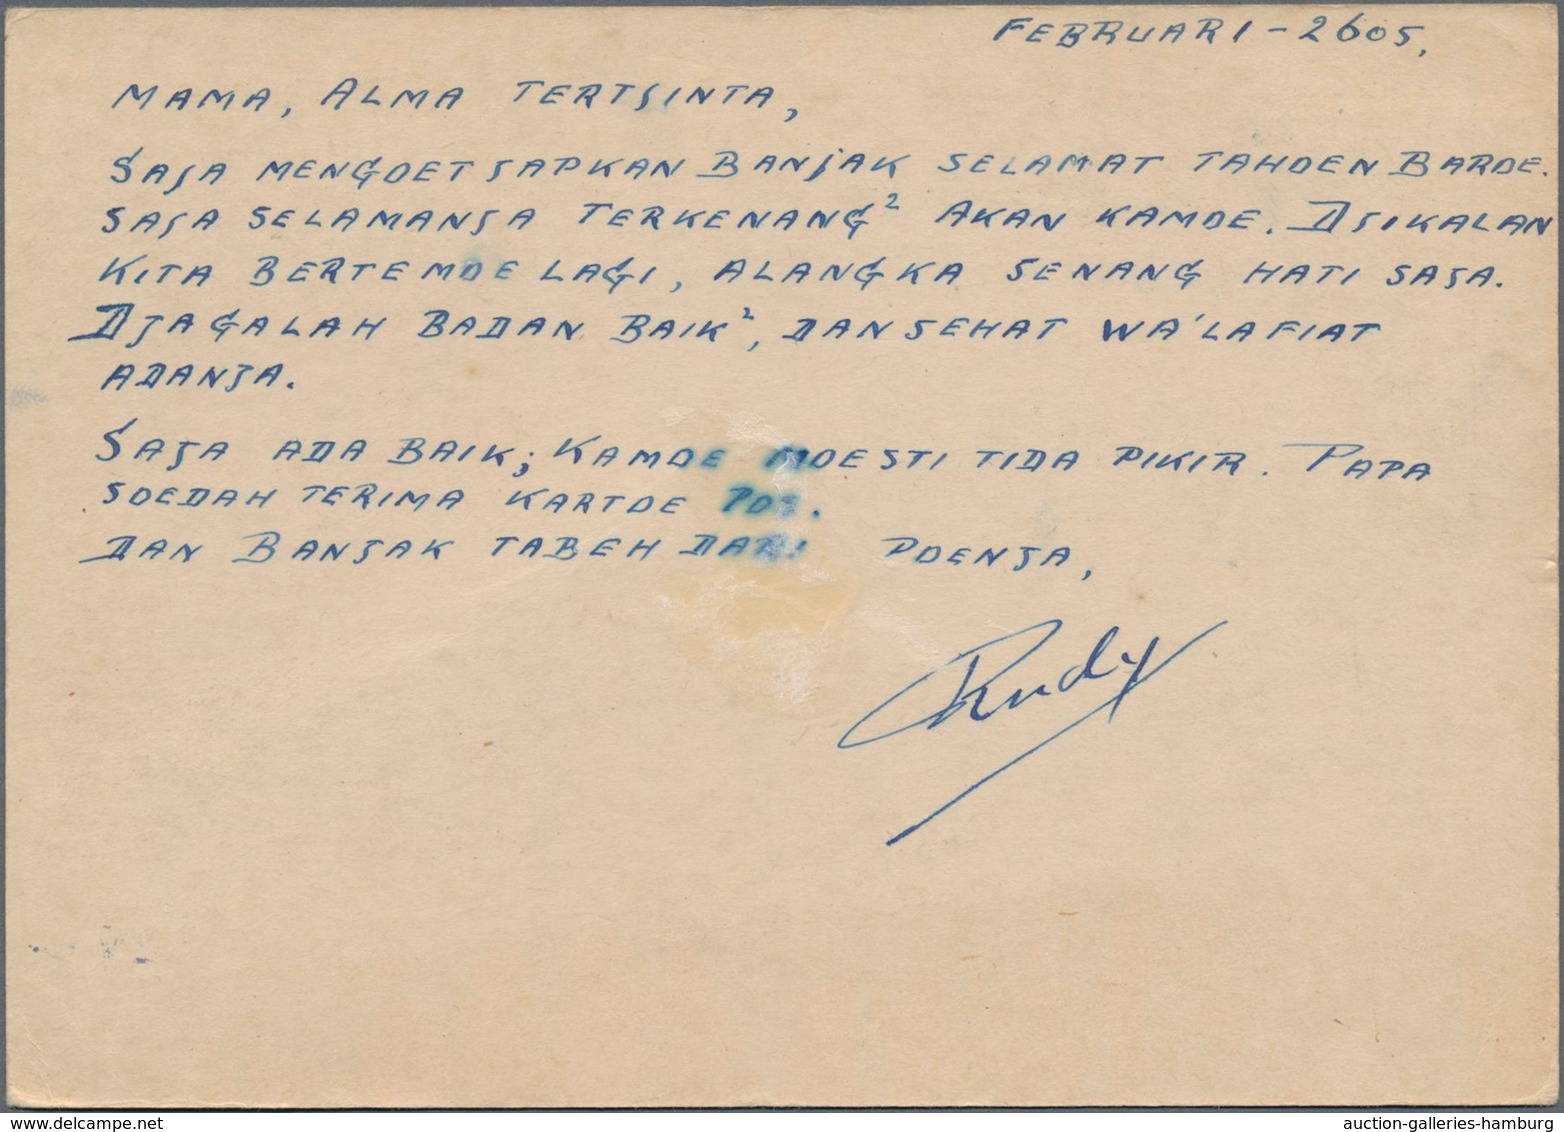 FEBRUARI - 2605,
MAMA, ALMA TERTSINTA,
SAJA MENGOETJAPKAN BANJAK SELAMAT TAHOEN BAROE.
SAJA SELAMANJA TERKENANG² AKAN KAMOE. DJIKALAN
KITA BERTEMOE LAGI, ALANGKA SENANG HATI SAJA.
DJAGALAH BADAN BAIK², DAN SEHAT WA'LAFIAT
ADANJA.
SAJA ADA BAIK; KAMOE MOESTI TIDA PIKIR. PAPA
SOEDAH TERIMA KARTOE POS.
DAN BANJAK TABEH DARI POENJA,
Rudy
auction-galleries-hamburg
delcampe.net